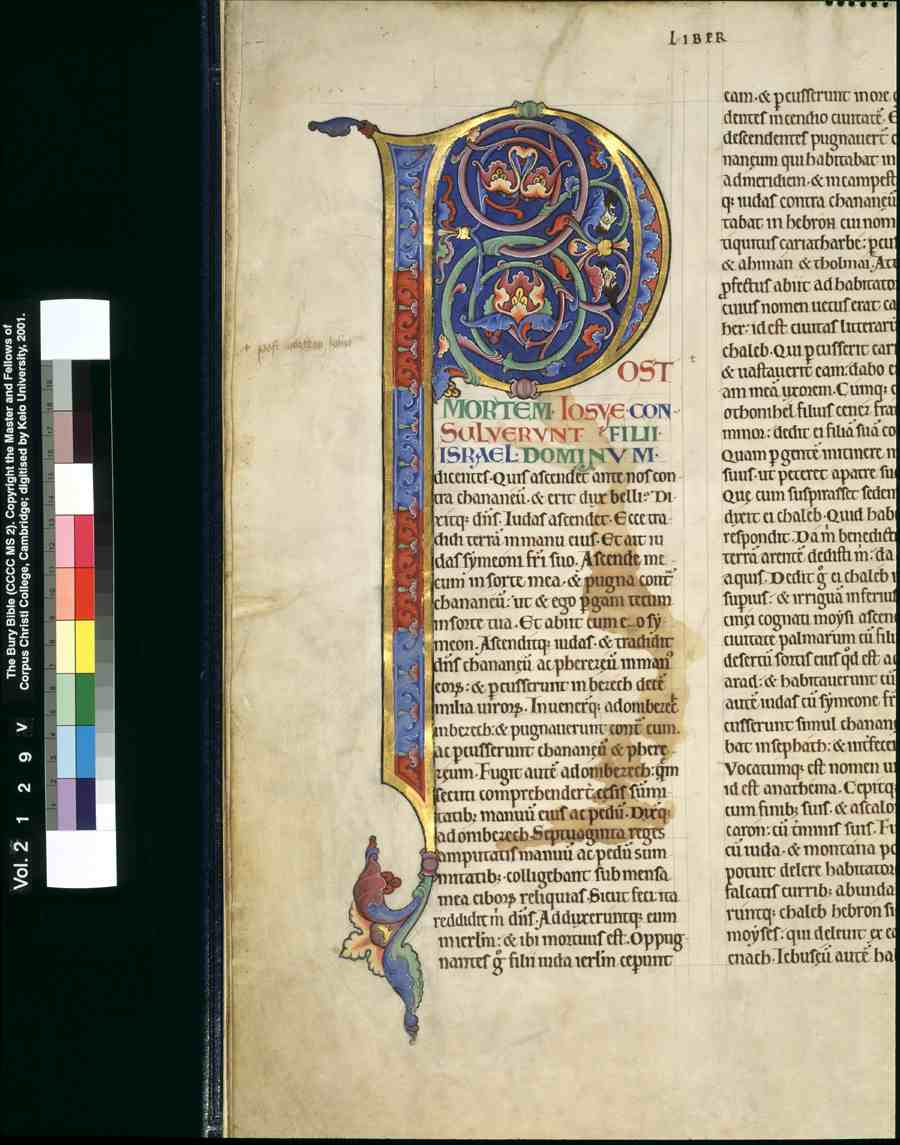 The Bury Bible (CCCC MS 2). Copyright the Master and Fellows of
Corpus Christi College, Cambridge; digitised by Keio University, 2001.
Vol. 2 1 2 9 V
LIBER
POST
MORTEM· IOSUE· CON·
SULVERVNT FILII·
ISRAEL· DOMINVM·
dicentes· Quis ascendet ante nos con
tra chananeũ· & erit dux belli? Di
xitq; dñs· Iudas ascendet· Ecce tra
didi terrã in manu eius· Et ait iu
das symeoni fri suo· Ascende me
cum in sorte mea· & pugna cont̃
chananeũ: ut & ego ꝑgam tecum
in sorte tua· Et abiit cum eo sy
meon· Ascenditq; iudas· & tradidit
dñs chananeũ ac pherezeũ in man
eoꝝ: & ꝑcusserunt in bezech decẽ
milia uiroꝝ· Inuenerq; adonibezec
in bezech: & pugnauerunt cont̃ eum·
ac ꝑcusserunt chananeũ & phere
zeum· Fugit autẽ adonibezech: qm̃
secuti comprehenderẽt cesis sum̃i
tatib; manuũ eius ac pedũ· Dixq;
adonibezech Septuaginta reges
amputatis manuũ ac pedũ sum
mitatib; colligebant sub mensa
mea ciboꝝ reliquias· Sicut feci ita
reddidit m̃ dñs· Adduxeruntq; eum
in ierłm: & ibi mortuus est· Oppug
nantes g̃ filii iuda ierłm ceperunt
eam· & ꝑcusserunt in ore
dentes incendio ciuitatẽ·
descendentes pugnauert̃
naneum qui habitabat in
ad meridiem· & in campest
q; iudas contra chananeũ
tabat in hebron cui nom
tiquitus cariatharbe: ꝑcus
& ahiman & tholmai· Atq
ꝓfectus abiit ad habitato
cuius nomen uetus erat ca
her: id est ciuitas litteraru
chaleb· Qui ꝑcusserit cari
& uastauerit eam: dabo e
am meã uxorem· Cumq; c
othonihel filius cenez fra
minor: dedit ei filiã suã co
Quam ꝑgentẽ in itinere m
suus· ut peteret a patre su
Que cum suspirasset seden
dixit ei chaleb· Quid hab
respondit· Da m̃ benedicti
terrã arentẽ dedisti m̃: da
aquis· Dedit g̃ ei chaleb i
supius: & irriguã inferius
cinei cognati moysi ascen
ciuitate palmarum cũ fili
desertũ sortis eius qd est a
arad: & habitauerunt cũ
autẽ iudas cũ symeone fr
cusserunt simul chanan
bat in sephath: & interfec
Vocatumq; est nomen u
id est anathema· Cepitq;
cum finib; suis· & ascalo
caron: cũ t̃minis suis· Fu
cũ iuda· & montana po
potuit delere habitator
falcatis currib; abunda
runtq; chaleb hebron si
moyses: qui deleuit ex ea
enach· Iebuseũ autẽ hab